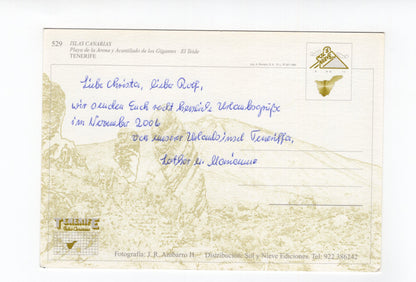 529 ISLAS CANARIAS
Playa de la Arena y Acantilado de los Gigantes El Teide
TENERIFE
Liebe Christa, liebe Rolf,
wir senden Euch recht herzliche Urlaubsgrüße
im November 2006
von unserer Urlaubsinsel Teneriffa,
Lothar u. Marianne
TENERIFE
Islas Canarias
Fotografía: J. R. Arribarro H. Distribución: Sol y Nieve Ediciones. Tel: 922 386242